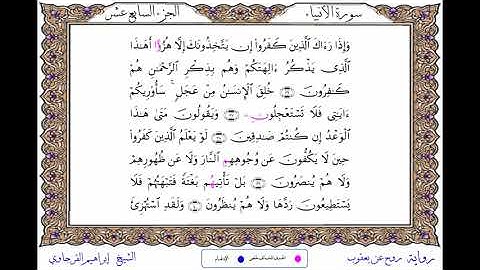 الجزء السابع عشر
سورة الأنبياء
وَإِذَا رَءَاكَ ٱلَّذِينَ كَفَرُوٓا۟ إِن يَتَّخِذُونَكَ إِلَّا هُزُؤًا أَهَٰذَا
ٱلَّذِى يَذْكُرُ ءَالِهَتَكُمْ وَهُم بِذِكْرِ ٱلرَّحْمَٰنِ هُمْ
كَٰفِرُونَ خُلِقَ ٱلْإِنسَٰنُ مِنْ عَجَلٍ سَأُو۟رِيكُمْ
ءَايَٰتِى فَلَا تَسْتَعْجِلُونِۦ وَيَقُولُونَ مَتَىٰ هَٰذَا
ٱلْوَعْدُ إِن كُنتُمْ صَٰدِقِينَ لَوْ يَعْلَمُ ٱلَّذِينَ كَفَرُوا۟
حِينَ لَا يَكُفُّونَ عَن وُجُوهِهِمِ ٱلنَّارَ وَلَا عَن ظُهُورِهِمْ
وَلَا هُمْ يُنصَرُونَ بَلْ تَأْتِيهُم بَغْتَةً فَتَبْهَتُهُمْ فَلَا
يَسْتَطِيعُونَ رَدَّهَا وَلَا هُمْ يُنظَرُونَ وَلَقَدِ ٱسْتُهْزِئَ
رواية روح عن يعقوب
الإدغام
الشيخ إبراهيم الفرجاوي